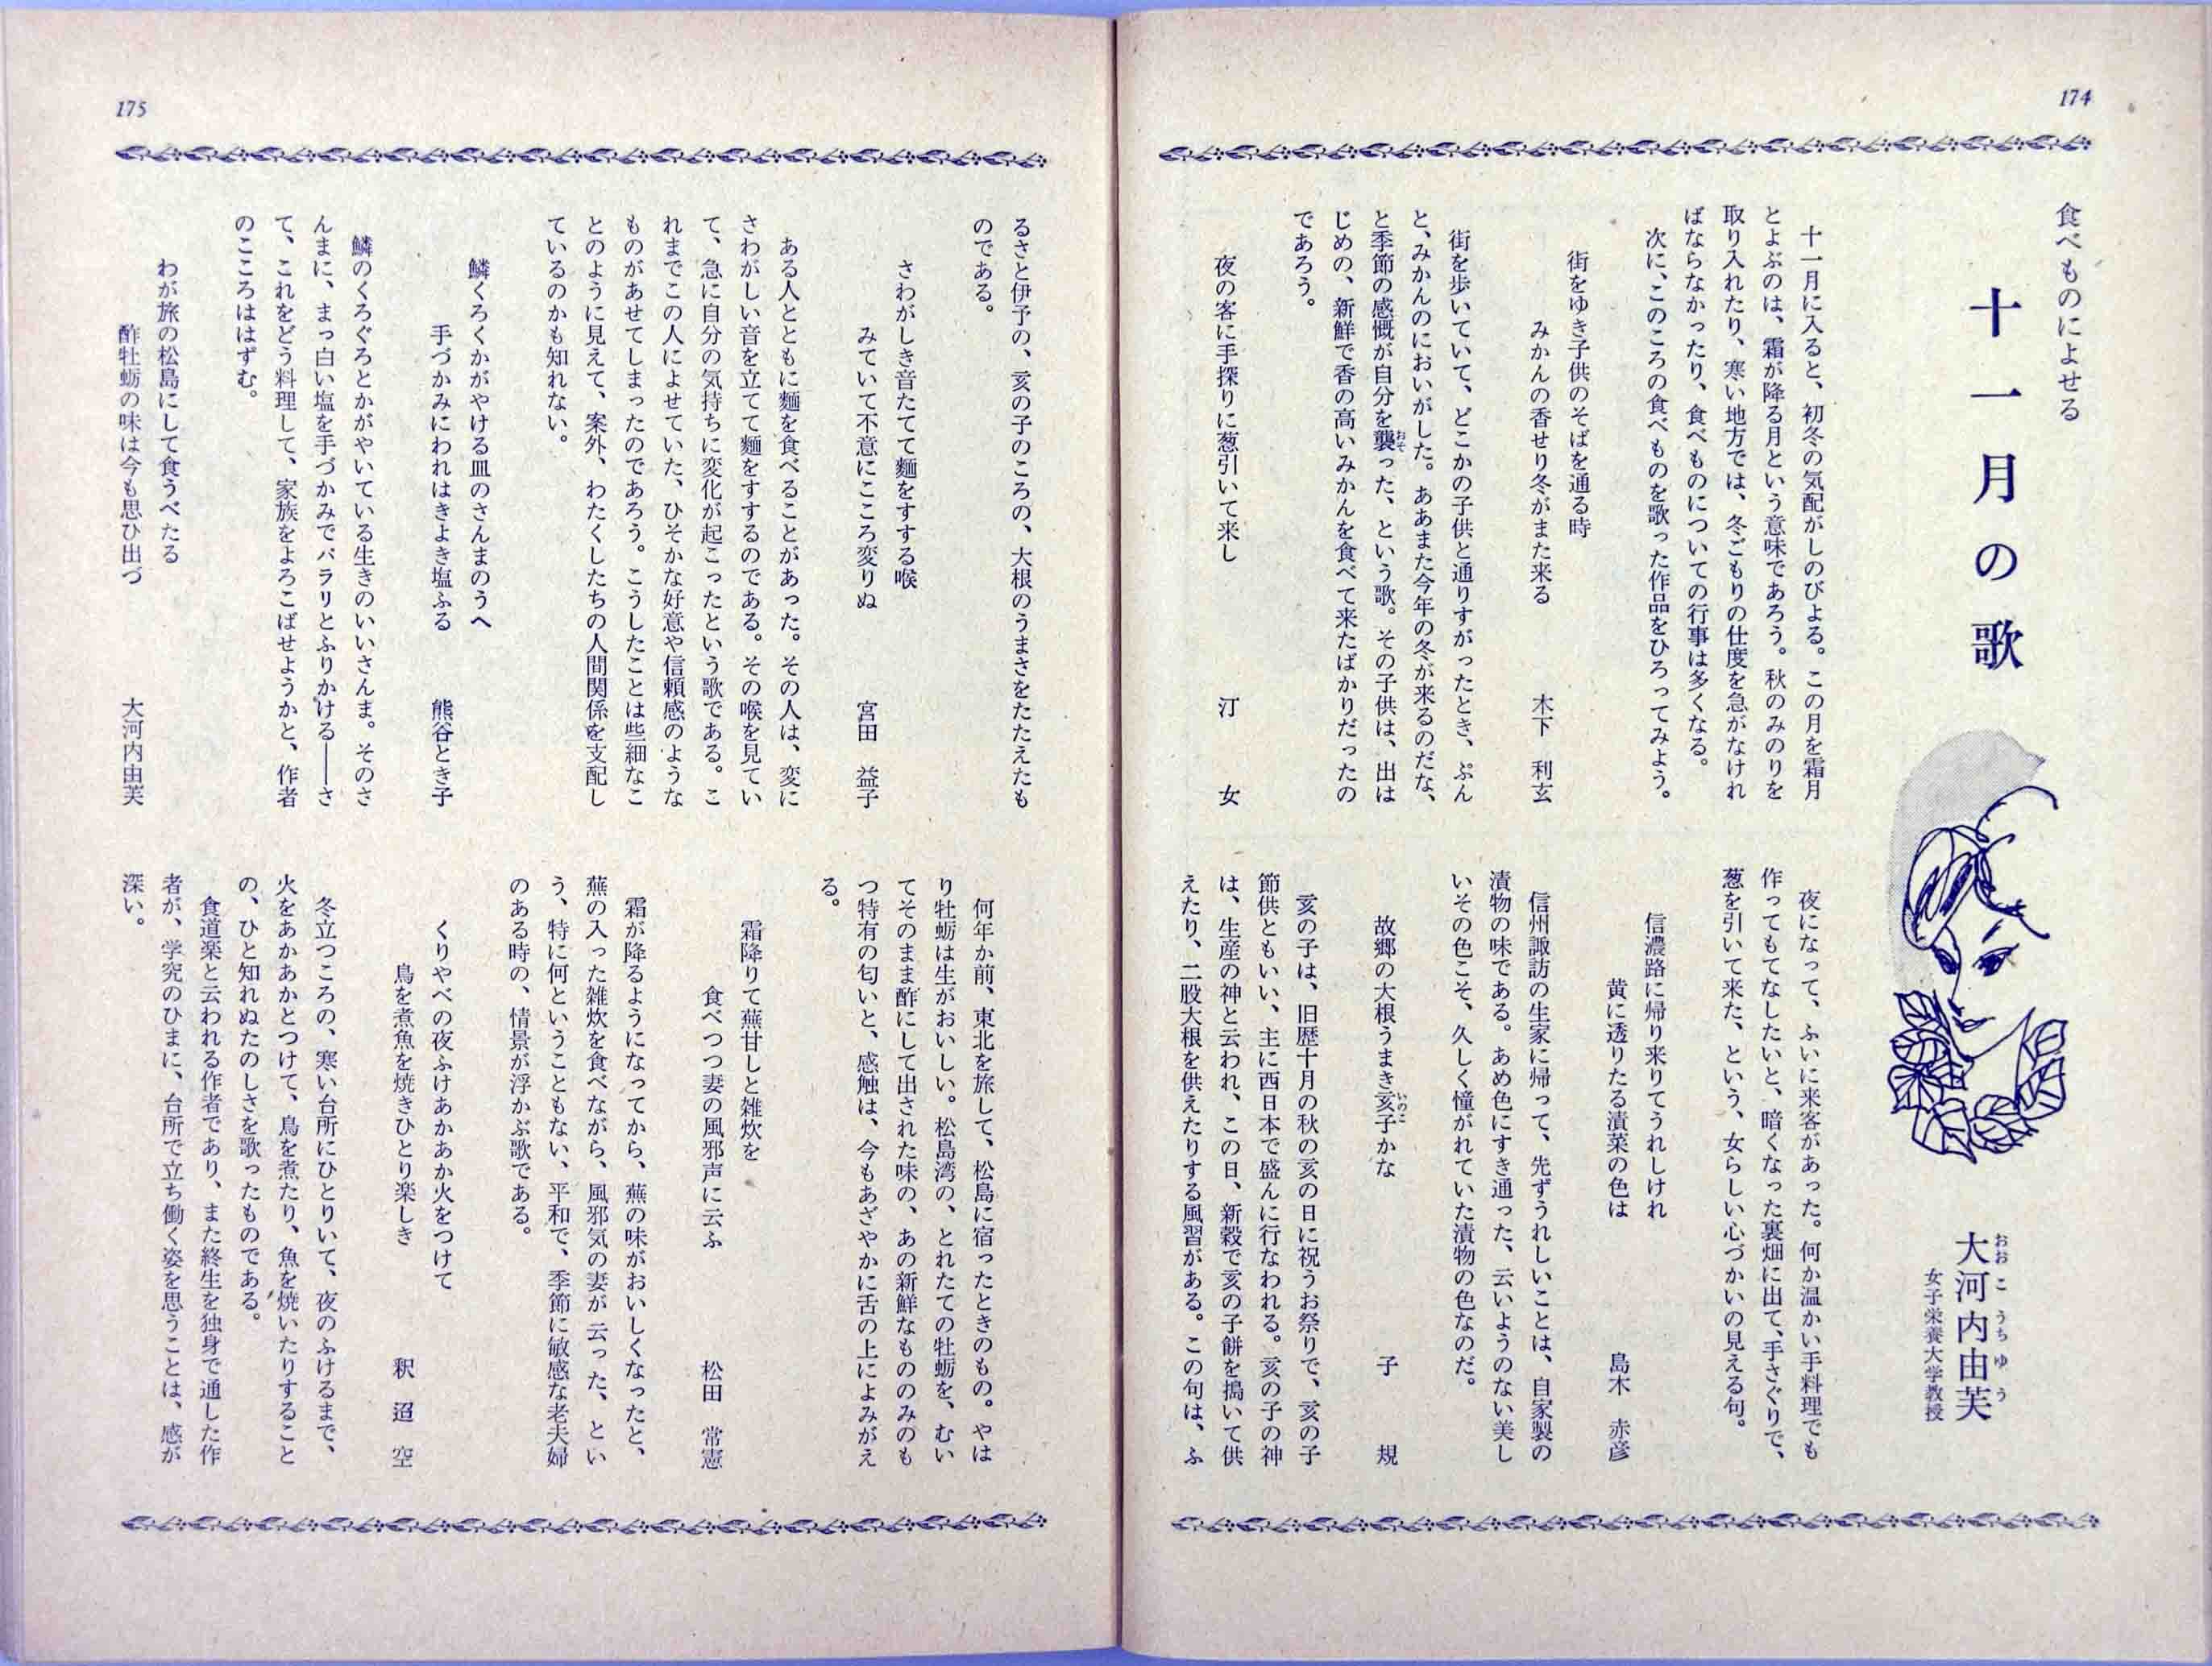 174
食べものによせる
十一月の歌
大河内由芙
おおこうちゆう
女子栄養大学教授
十一月に入ると、初冬の気配がしのびよる。この月を霜月
とよぶのは、霜が降る月という意味であろう。秋のみのりを
取り入れたり、寒い地方では、冬ごもりの仕度を急がなけれ
ばならなかったり、食べものについての行事は多くなる。
次に、このころの食べものを歌った作品をひろってみよう。
街をゆき子供のそばを通る時
みかんの香せり冬がまた来る
木下 利玄
街を歩いていて、どこかの子供と通りすがったとき、ぷん
と、みかんのにおいがした。ああまた今年の冬が来るのだな、
と季節の感慨が自分を襲った、という歌。その子供は、出は
おそ
じめの、新鮮で香の高いみかんを食べて来たばかりだったの
であろう。
夜の客に手探りに葱引いて来し
汀女
夜になって、ふいに来客があった。何か温かい手料理でも
作ってもてなしたいと、暗くなった裏畑に出て、手さぐりで、
葱を引いて来た、という、女らしい心づかいの見える句。
信濃路に帰り来りてうれしけれ
黄に透りたる漬菜の色は
島木 赤彦
信州諏訪の生家に帰って、先ずうれしいことは、自家製の
漬物の味である。あめ色にすき通った、云いようのない美し
いその色こそ、久しく憧がれていた漬物の色なのだ。
故郷の大根うまき亥子かな
いのこ
子規
亥の子は、旧歴十月の秋の亥の日に祝うお祭りで、亥の子
節供ともいい、主に西日本で盛んに行なわれる。亥の子の神
は、生産の神と云われ、この日、新穀で亥の子餅を搗いて供
えたり、二股大根を供えたりする風習がある。この句は、ふ
175
るさと伊予の、亥の子のころの、大根のうまさをたたえたも
のである。
さわがしき音たてて麺をすする喉
みていて不意にこころ変りぬ
宮田 益子
ある人とともに麺を食べることがあった。その人は、変に
さわがしい音を立てて麺をすするのである。その喉を見てい
て、急に自分の気持ちに変化が起こったという歌である。こ
れまでこの人によせていた、ひそかな好意や信頼感のような
ものがあせてしまったのであろう。こうしたことは些細なこ
とのように見えて、案外、わたくしたちの人間関係を支配し
ているのかも知れない。
鱗くろくかがやける皿のさんまのうへ
手づかみにわれはきよき塩ふる
熊谷とき子
鱗のくろぐろとかがやいている生きのいいさんま。そのさ
んまに、まっ白い塩を手づかみでパラリとふりかける——さ
て、これをどう料理して、家族をよろこばせようかと、作者
のこころははずむ。
わが旅の松島にして食うべたる
酢牡蛎の味は今も思ひ出づ
大河内由芙
何年か前、東北を旅して、松島に宿ったときのもの。やは
り牡蛎は生がおいしい。松島湾の、とれたての牡蛎を、むい
てそのまま酢にして出された味の、あの新鮮なもののみのも
つ特有の匂いと、感触は、今もあざやかに舌の上によみがえ
る。
霜降りて蕪甘しと雑炊を
食べつつ妻の風邪声に云ふ
松田 常憲
霜が降るようになってから、蕪の味がおいしくなったと、
蕪の入った雑炊を食べながら、風邪気の妻が云った、とい
う、特に何ということもない、平和で、季節に敏感な老夫婦
のある時の、情景が浮かぶ歌である。
くりやべの夜ふけあかあか火をつけて
鳥を煮魚を焼きひとり楽しき
釈迢空
冬立つころの、寒い台所にひとりいて、夜のふけるまで、
火をあかあかとつけて、鳥を煮たり、魚を焼いたりすること
の、ひと知れぬたのしさを歌ったものである。
食道楽と云われる作者であり、また終生を独身で通した作
者が、学究のひまに、台所で立ち働く姿を思うことは、感が
深い。